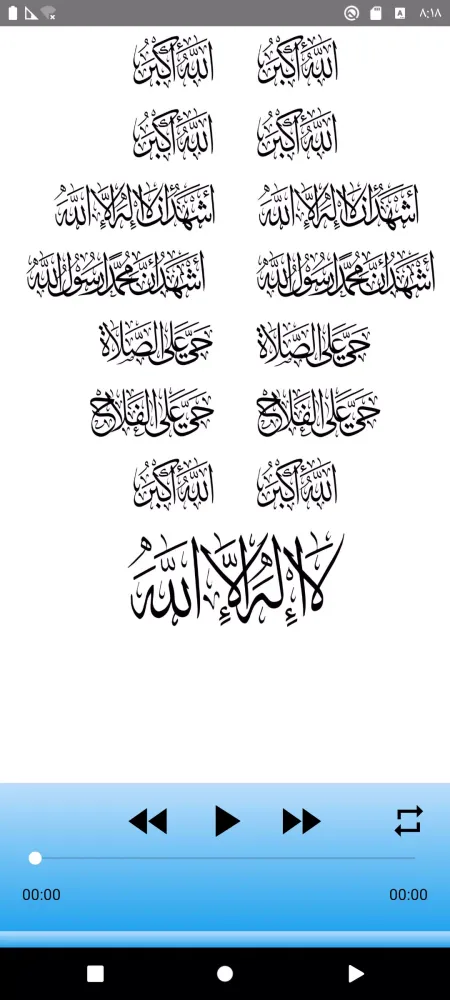 ٨:١٨
اللهُ أَكْبَرُ اللهُ أَكْبَرُ
اللهُ أَكْبَرُ اللهُ أَكْبَرُ
أَشْهَدُ أَنْ لَا إِلَهَ إِلَّا اللَّهُ أَشْهَدُ أَنْ لَا إِلَهَ إِلَّا اللَّهُ
أَشْهَدُ أَنَّ مُحَمَّدًا رَسُولُ اللَّهُ أَشْهَدُ أَنَّ مُحَمَّدًا رَسُولُ اللَّهُ
حَيَّ عَلَى الصَّلَاة حَيَّ عَلَى الصَّلَاة
حَيَّ عَلَى الفَلَاح حَيَّ عَلَى الفَلَاح
اللهُ أَكْبَرُ اللهُ أَكْبَرُ
لَا إِلَهَ إِلَّا اللَّهُ
00:00 00:00